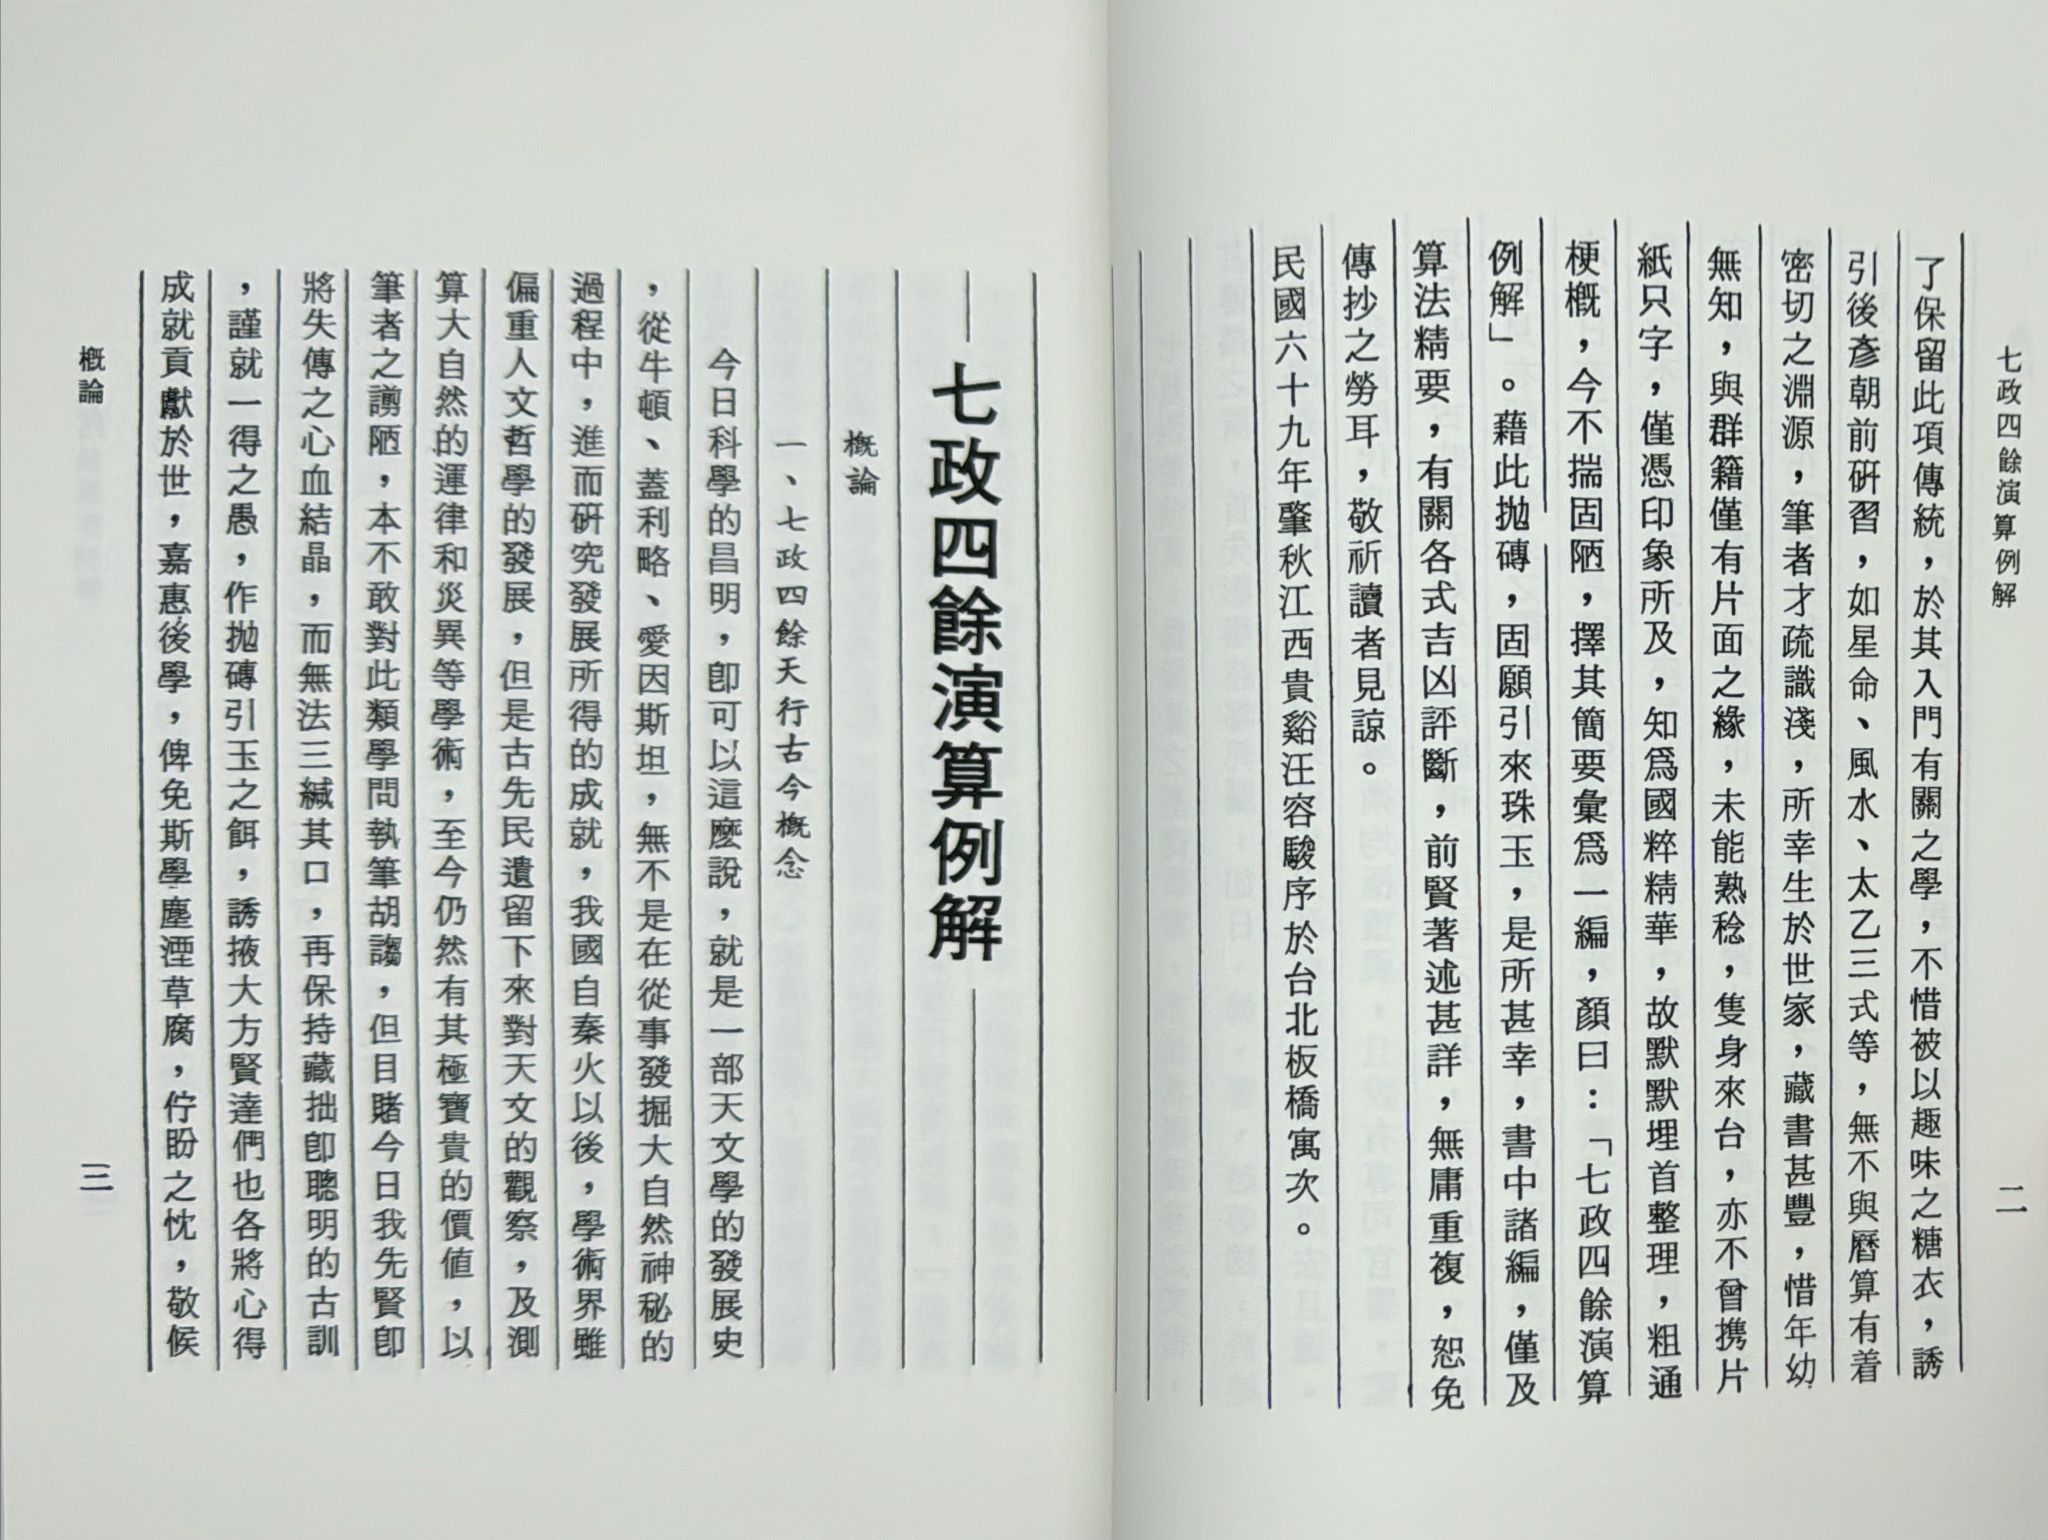 七政四餘演算例解
二
了保留此項傳統，於其入門有關之學，不惜被以趣味之糖衣，誘
引後彥朝前研習，如星命、風水、太乙三式等，無不與曆算有着
密切之淵源，筆者才疏識淺，所幸生於世家，藏書甚豐，惜年幼
無知，與群籍僅有片面之緣，未能熟稔，隻身來台，亦不曾攜片
紙只字，僅憑印象所及，知爲國粹精華，故默默埋首整理，粗通
梗概，今不揣固陋，擇其簡要彙爲一編，顏曰：「七政四餘演算
例解」。藉此拋磚，固願引來珠玉，是所甚幸，書中諸編，僅及
算法精要，有關各式吉凶評斷，前賢著述甚詳，無庸重複，恕免
傳抄之勞耳，敬祈讀者見諒。
民國六十九年肇秋江西貴谿汪容駿序於台北板橋寓次。
七政四餘演算例解
概論
一、七政四餘天行古今概念
今日科學的昌明，卽可以這麽說，就是一部天文學的發展史
，從牛頓、蓋利略、愛因斯坦，無不是在從事發掘大自然神秘的
過程中，進而研究發展所得的成就，我國自秦火以後，學術界雖
偏重人文哲學的發展，但是古先民遺留下來對天文的觀察，及測
算大自然的運律和災異等學術，至今仍然有其極寶貴的價值，以
筆者之謭陋，本不敢對此類學問執筆胡謅，但目賭今日我先賢卽
將失傳之心血結晶，而無法三緘其口，再保持藏拙卽聰明的古訓
，謹就一得之愚，作拋磚引玉之餌，誘掖大方賢達們也各將心得
成就貢獻於世，嘉惠後學，俾免斯學塵湮草腐，佇盼之忱，敬候
概論
三